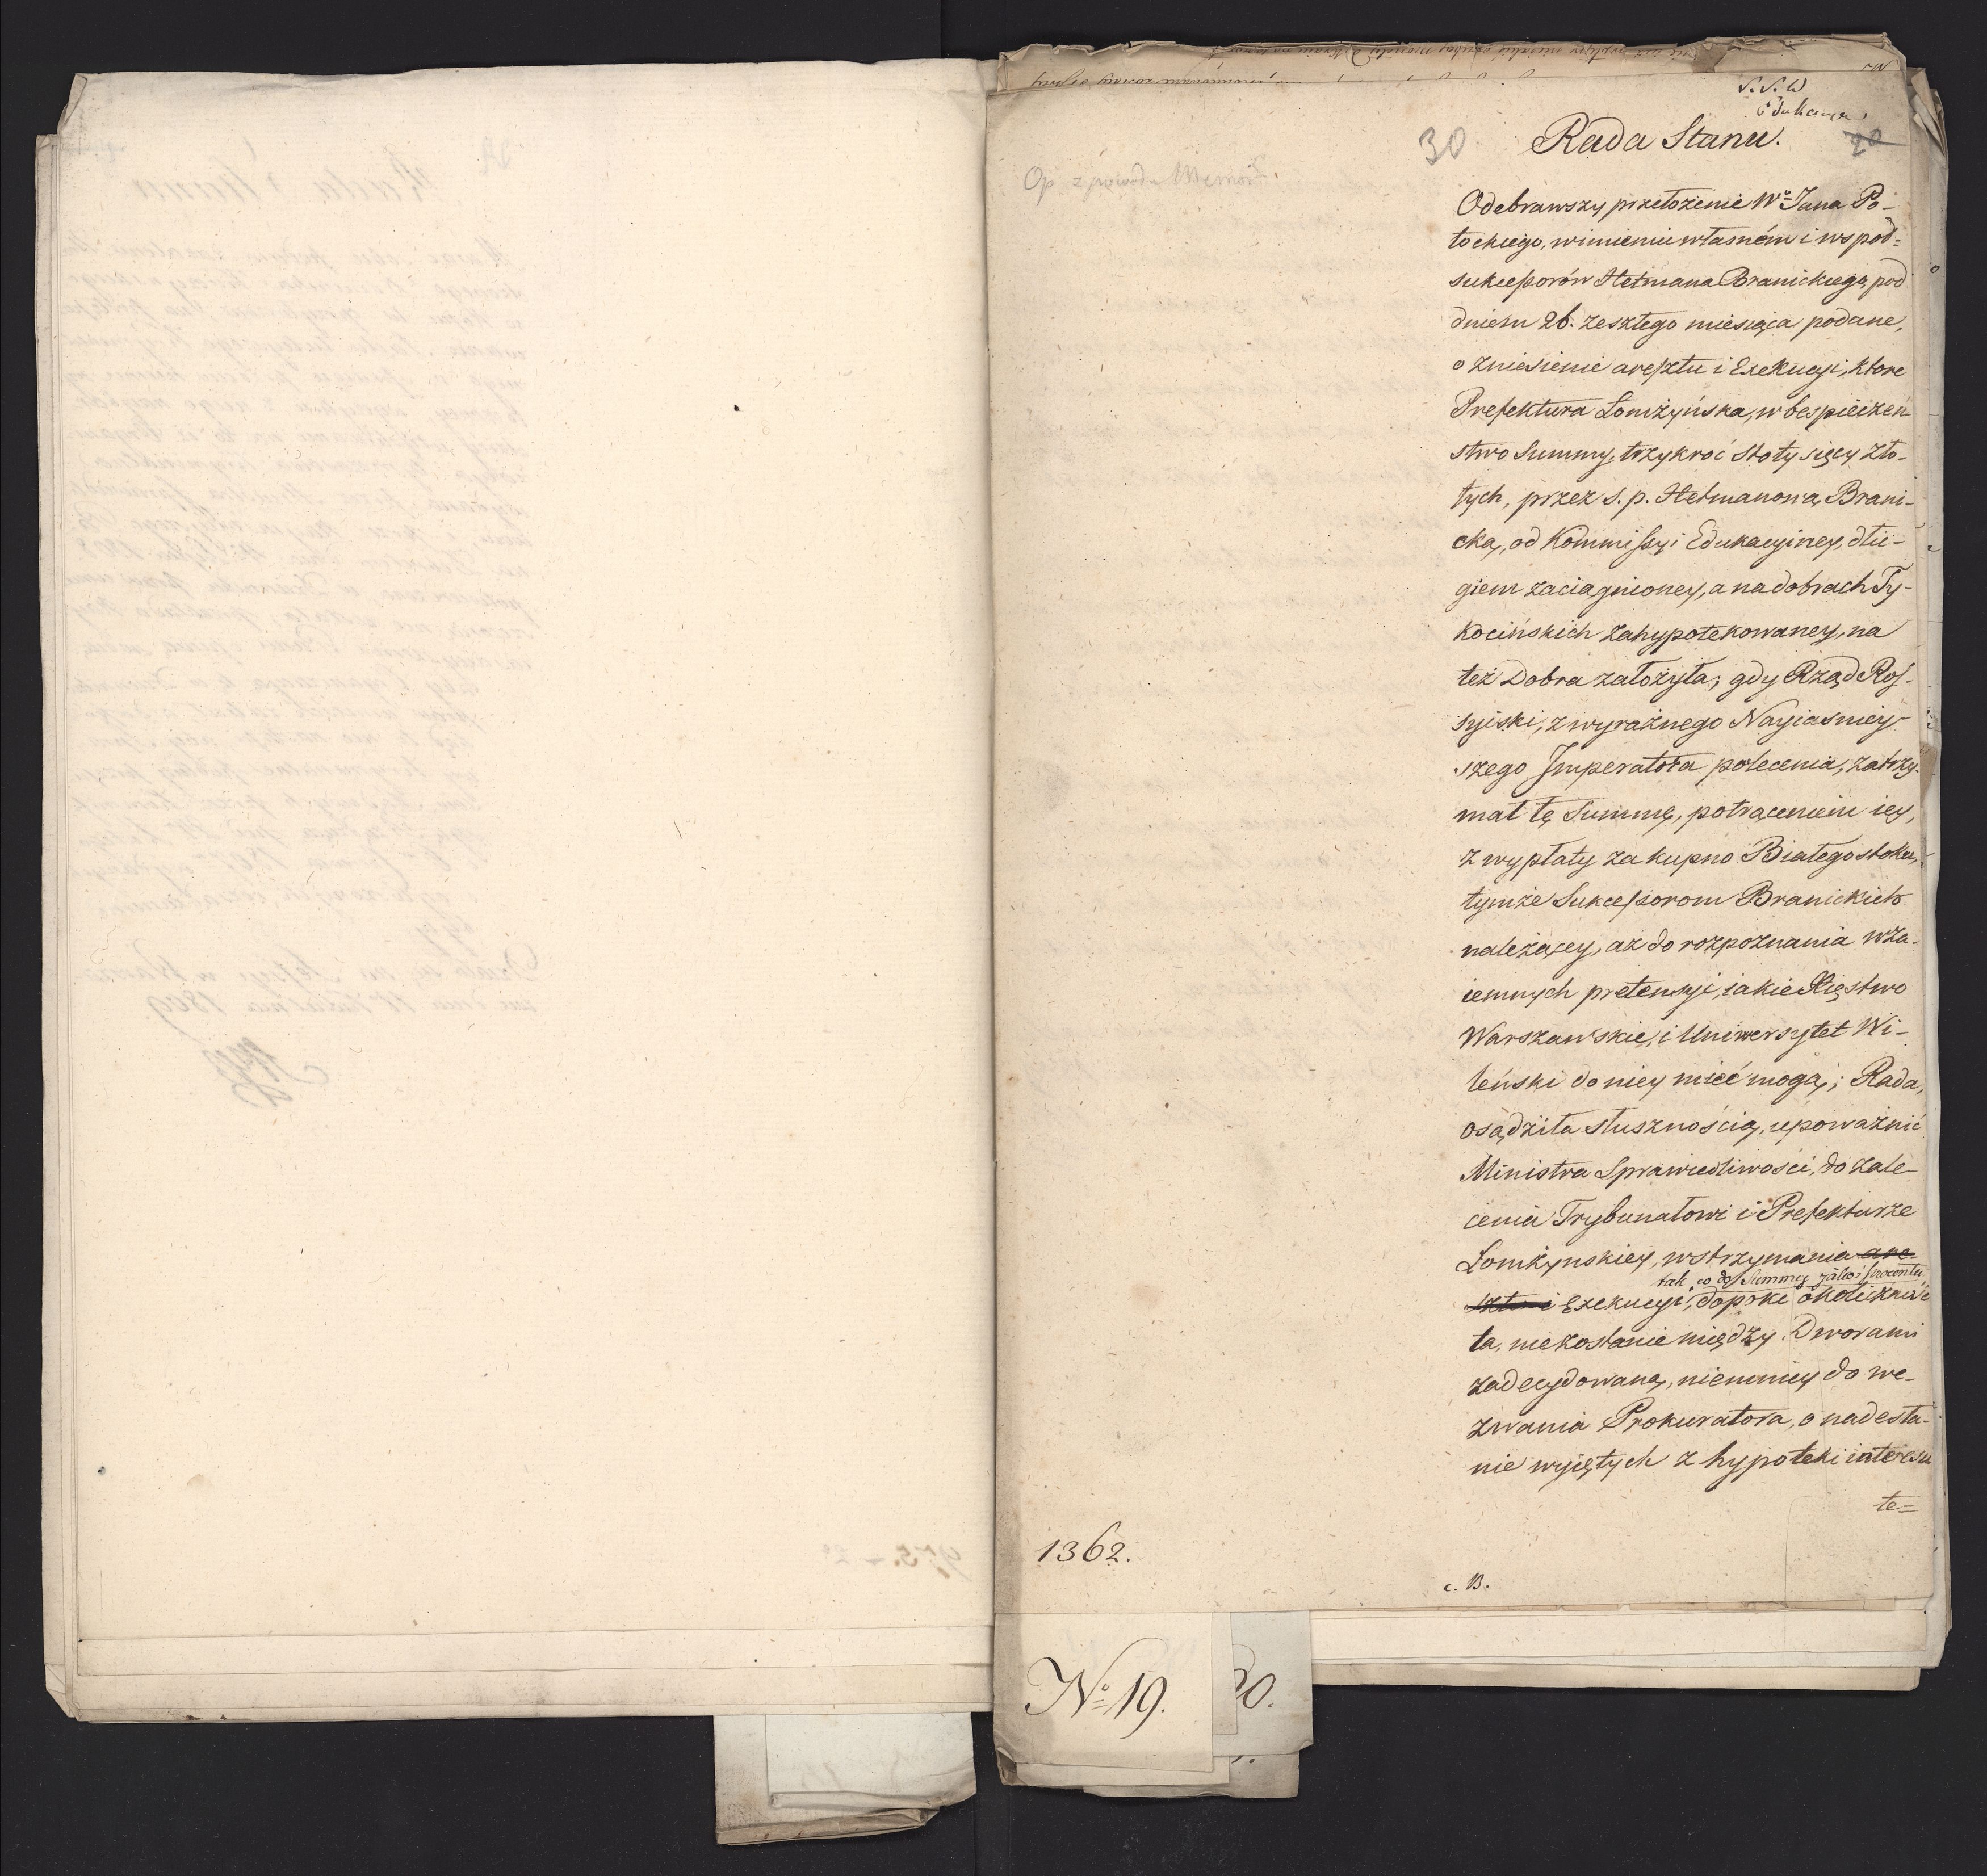 S. S. W
Edukacya
30
20
Rada Stanu.
Op z powodu Memor
Odebrawszy przełożenie Wo Jana Po-
tockiego, w imieniu własném i wspoł-
sukcessorów Hetmana Branickiego, pod
dniem 26. zeszłego miesiąca podane,
o zniesienie aresztu i Exekucyi, ktore
Prefektura Łomżyńska, w bespieczeń-
stwo Summy, trzykroć stotysięcy zło-
tych, przez s. p. Hetmanową Brani-
cką, od Kommissyi Edukacyiney, dłu-
giem zaciągnioney, a na dobrach Ty-
kocińskich zahypotekowaney, na
też Dobra założyła; gdy Rząd Ros-
syiski, z wyraźnego Nayiasniey-
szego Jmperatora polecenia, zatrzy-
mał tę Summę, potrąceniem iey,
z wypłaty za kupno Białegostoku,
tymże Sukcessorom Branickich
należącey, aż do rozpoznania wza-
iemnych pretensyi, iakie Xięstwo
Warszawskie, i Uniwersytet Wi-
leński do niey mieć mogą; Rada,
osądziła słusznością, upoważnić
Ministra Sprawiedliwości, do zale-
cenia Trybunałowi i Prefekturze
Łomżynskiey, wstrzymania are-
tak co do Summy jako i procentu,
sztu i Exekucyi, dopóki okoliczność
ta, nie zostanie między Dworami
zadecydowaną, niemniey do we-
zwania Prokuratora, o nadesła-
nie wyiętych z hypoteki interesu
te=
1362.
c. B.
No 19.
20.